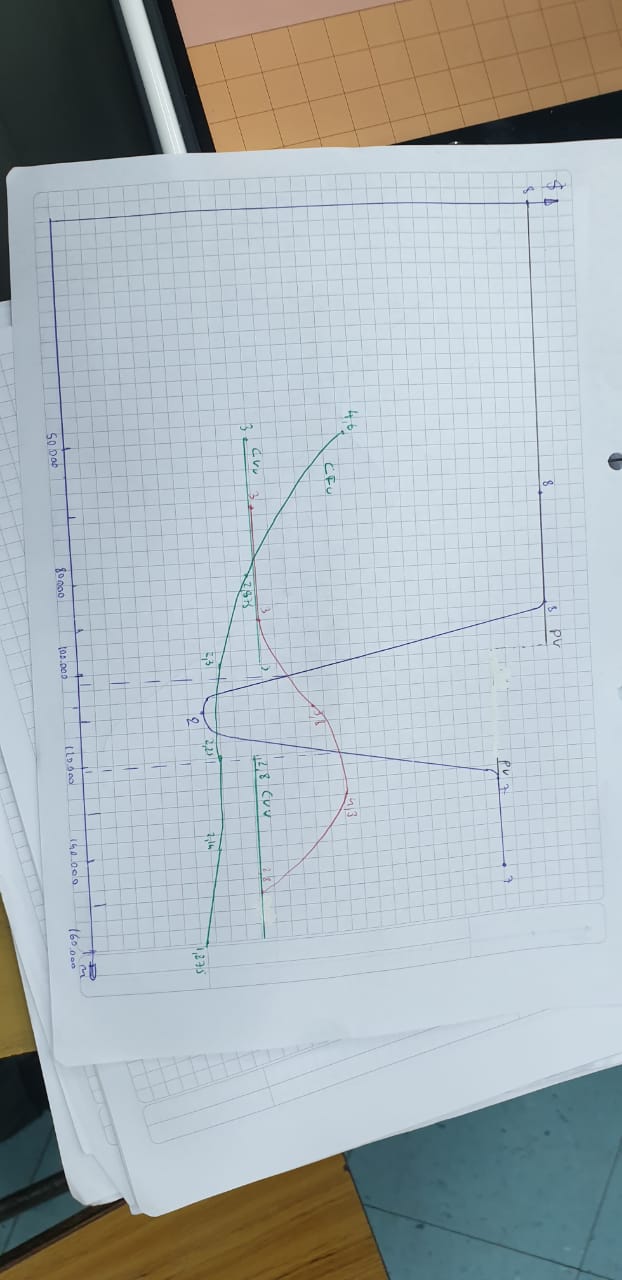 $
8
8
8
PV
PV 7
7
4,6
CFU
4,3
3,8
3
CVU
3
3
3
2,8 CVU
2,8
2,875
2,3
2
2,14
50.000
80.000
100.000
120.000
140.000
160.000